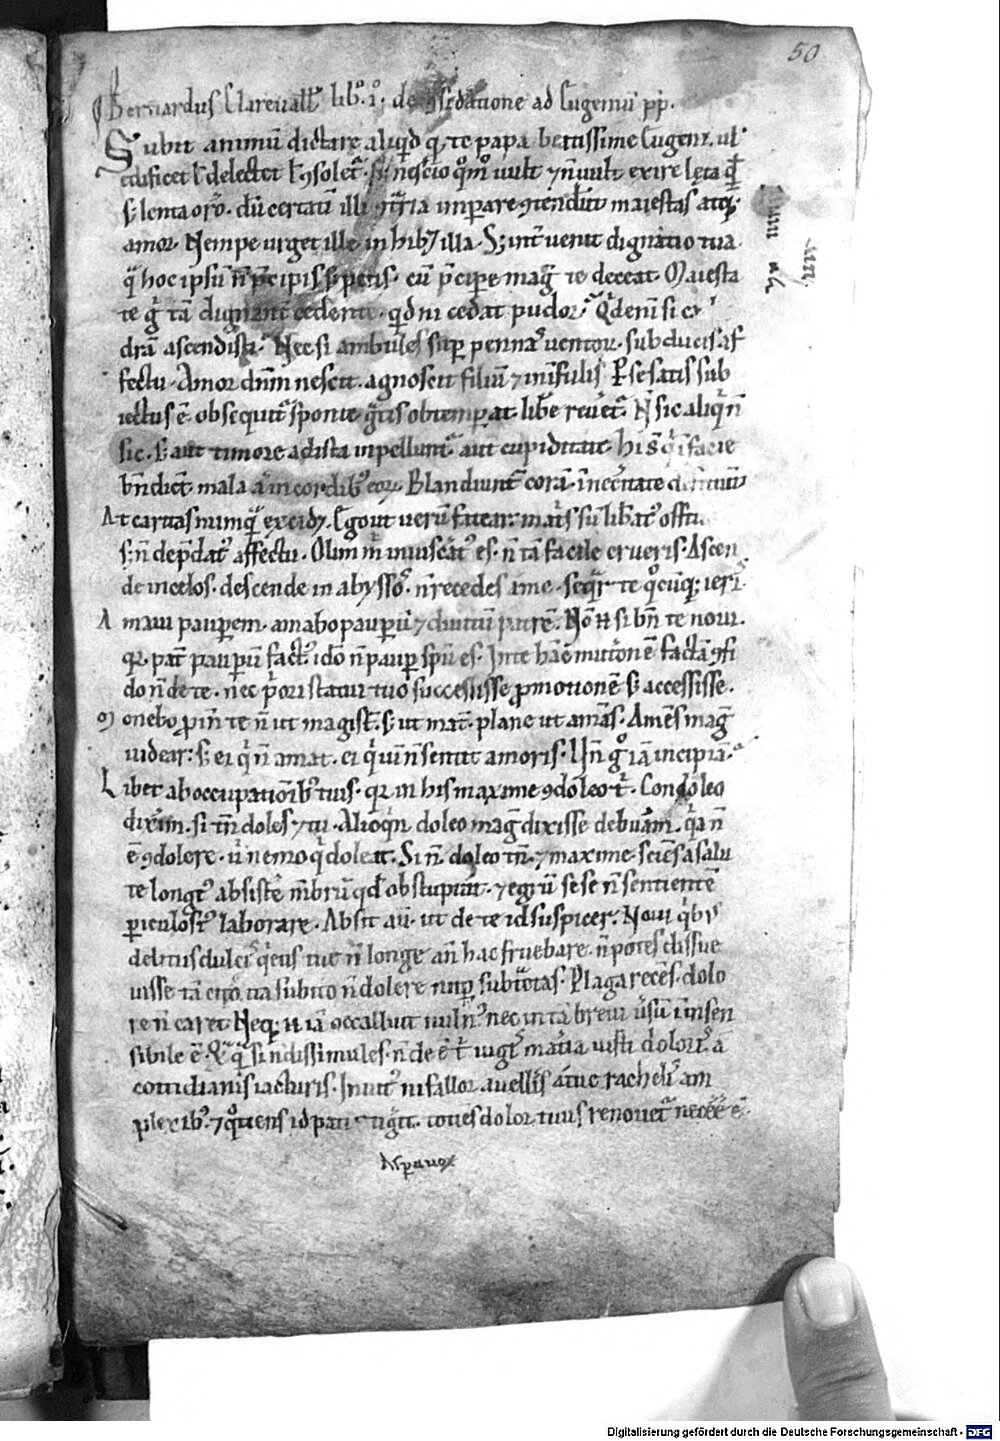 50
Bernardus Clareuall̄ lib°. i°. de ꝯsid̄atione ad Eugeniū pp̄.
Subit animū dictare aliqͥd qͥ te papa beatissime Eugeni. ul̓
edificet l̓ delectet l̓ ꝯsolet᷑. S; nescio qͦm̄ uult ⁊ n̄ uult exire leta qͥdē
s; lenta or̄o. dū certatī illi ꝯtͣria imꝑare ꝯtendūt maiestas atqꝫ
amor. Nempe urget ille inhibꝫ illa. S; int̄uenit dignatio tua
qͣ hoc ipsū n̄ p̄cipis s; petis. cū p̄cipe mag̅ te deceat. Maiesta
te gͦ tā dignant̄ cedente. qͥdni cedat pudor. Qͥd enī si ca
drā ascendisti. Nec si ambules suꝑ pennas uentoꝝ. subduceris af
fectu. Amor dn̄m nescit. agnoscit filiū ⁊ in īfulis. P se satis sub
iectus ē. obsequit᷑ sponte gͣtis obtemꝑat. libe reūet᷑. N̄ sic aliqͥ n̄
sic. s; aut timore ad ista inpellunt᷑ aut cupiditate. Hi s̄ qͥ ī facie
bn̄dict̄. mala aū in cordibꝰ eoꝝ. Blandiunt᷑ corā. ī nec̄itate deficiūt
At caritas nunqͣ excidꝫ. Ego ut uerū fatear. mat̄s sū lib̄atꝰ offitio
s; n̄ dep̄datꝰ affectu. Olim m̄ inuisc̄atꝰ es. n̄ tā facile erueris. Ascen
de in celos. descende in abyssos. n̄ recedes a me. seqͣr te qͦcūqꝫ ieris.
Amaui pauꝑem. amabo pauꝑū ⁊ diuitū patrē. Nō n̄ si bn̄ te noui.
qꝛ pat̄ pauꝑū factꝰ idō n̄ pauꝑ spū es. In te hāc mutōnē factā ꝯfi
do n̄ de te. nec p̄ori statui tuo successisse ꝓmotionē s; accessisse.
Monebo ꝓin̄ te n̄ ut magist̄. s; ut mat̄. plane ut amās. Amēs mag̅
uidear. s; ei qͥ n̄ amat. ei qͥ uī n̄ sentit amoris. Un̄ gͦ iā incipiā.
Libet ab occupatiōibꝰ tuis. qꝛ in his maxime ꝯdoleo t̄. Condoleo
dixim. si tn̄ doles ⁊ tu. Alioqͥn doleo mag̅ dixisse debuam. qͥa n̄
ē ꝯdolere. ū nemo qͥ doleat. Si n̄ doles tn̄. ⁊ maxime. sciēs a salu
te longiꝰ absistē mb̄rū qd̓ obstupuit. ⁊ egrū sese n̄ sentientē
ꝑiculosiꝰ laborare. Absit aū. ut de te id suspicer. Noui qͥbꝰ
delitiis dulcis qͥetis tue n̄ longe an̄ hac fruebare. n̄ potes dissue
uisse tā cito. ita subito n̄ dolere nuꝑ subtͣctas. Plaga recēs. dolo
re n̄ caret. Neqꝫ n̄ iā occalluit uulnꝰ nec in tā breui ūsū ī insen
sibile ē. si n̄ dissimules. n̄ de ē t̄ iugis mat̄ia iusti doloris a
cottidianis iacturis. Inuitꝰ ni fallor auelleris a tue rachelis am
plexibꝰ. ⁊ qͦtiens id pati ꝯtigͥt. totiens dolor tuus renouet᷑ necē̄ ē.
Digitalisierung gefördert durch die Deutsche Forschungsgemeinschaft - DFG